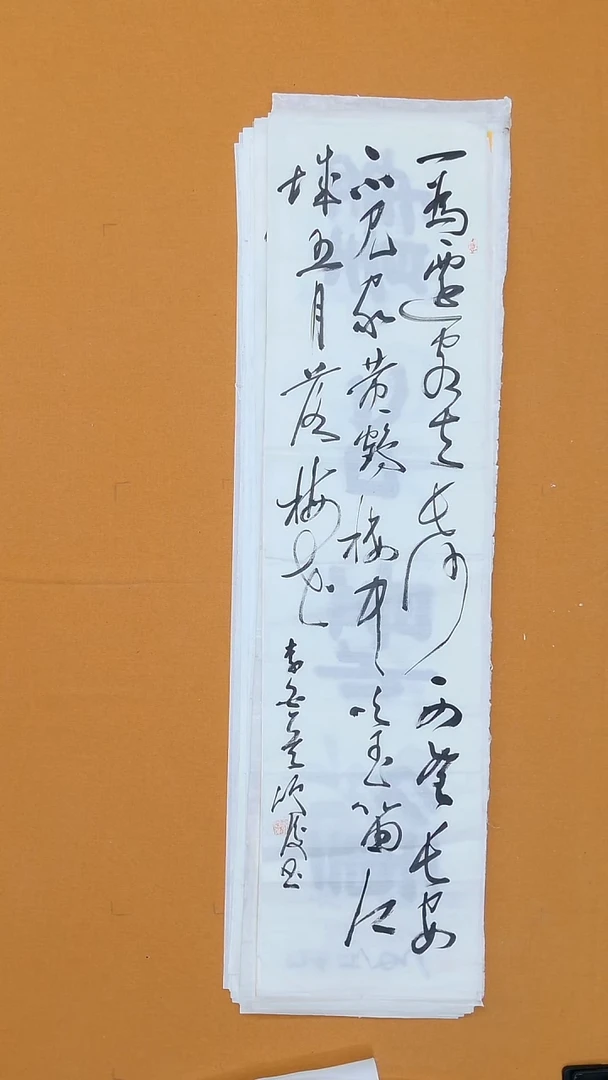 一為遷客去長沙西望長安
不見家黃鶴樓中吹玉笛江
城五月落梅花
李白